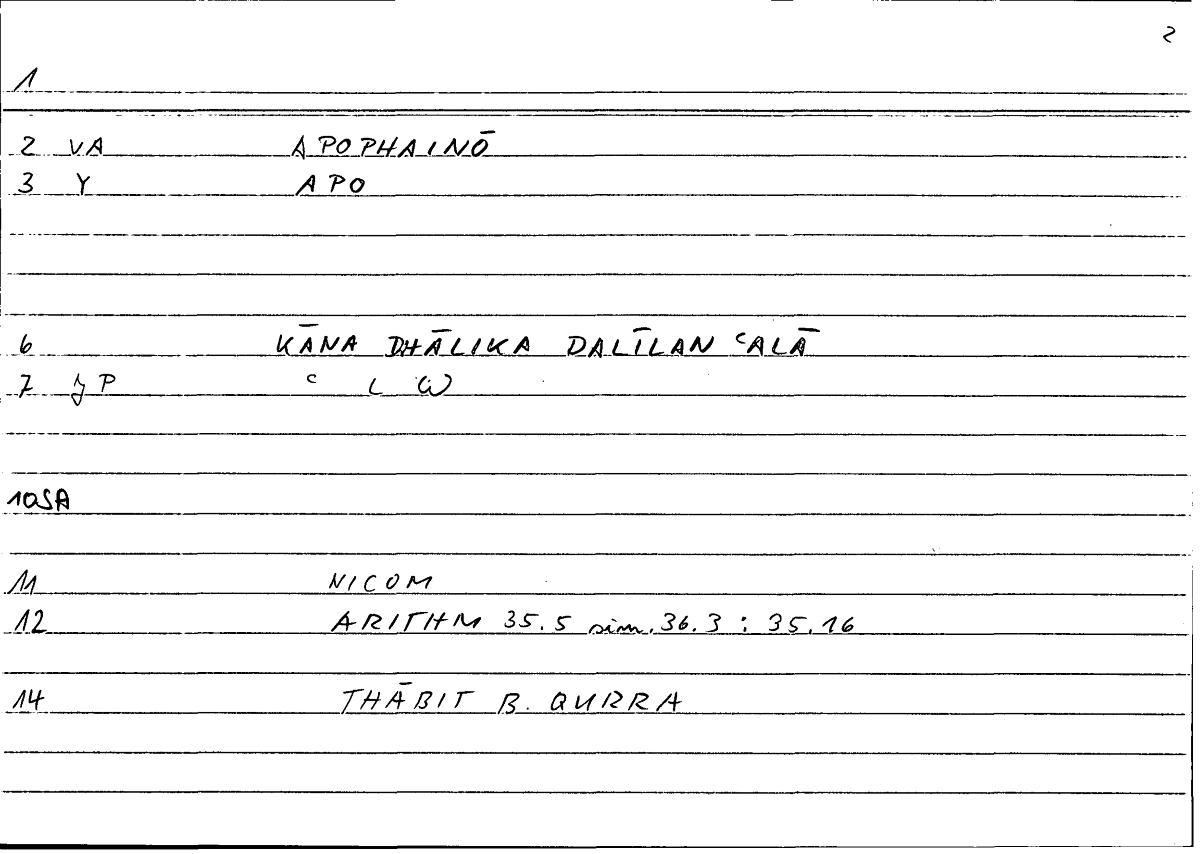 2
1
2 VA APOPHAINŌ
3 Y APO
6 KĀNA DHĀLIKA DALĪLAN ʿALĀ
7 JP ʿ L W
10SA
11 NICOM
12 ARITHM 35.5 sim. 36.3 : 35.16
14 THĀBIT B. QURRA